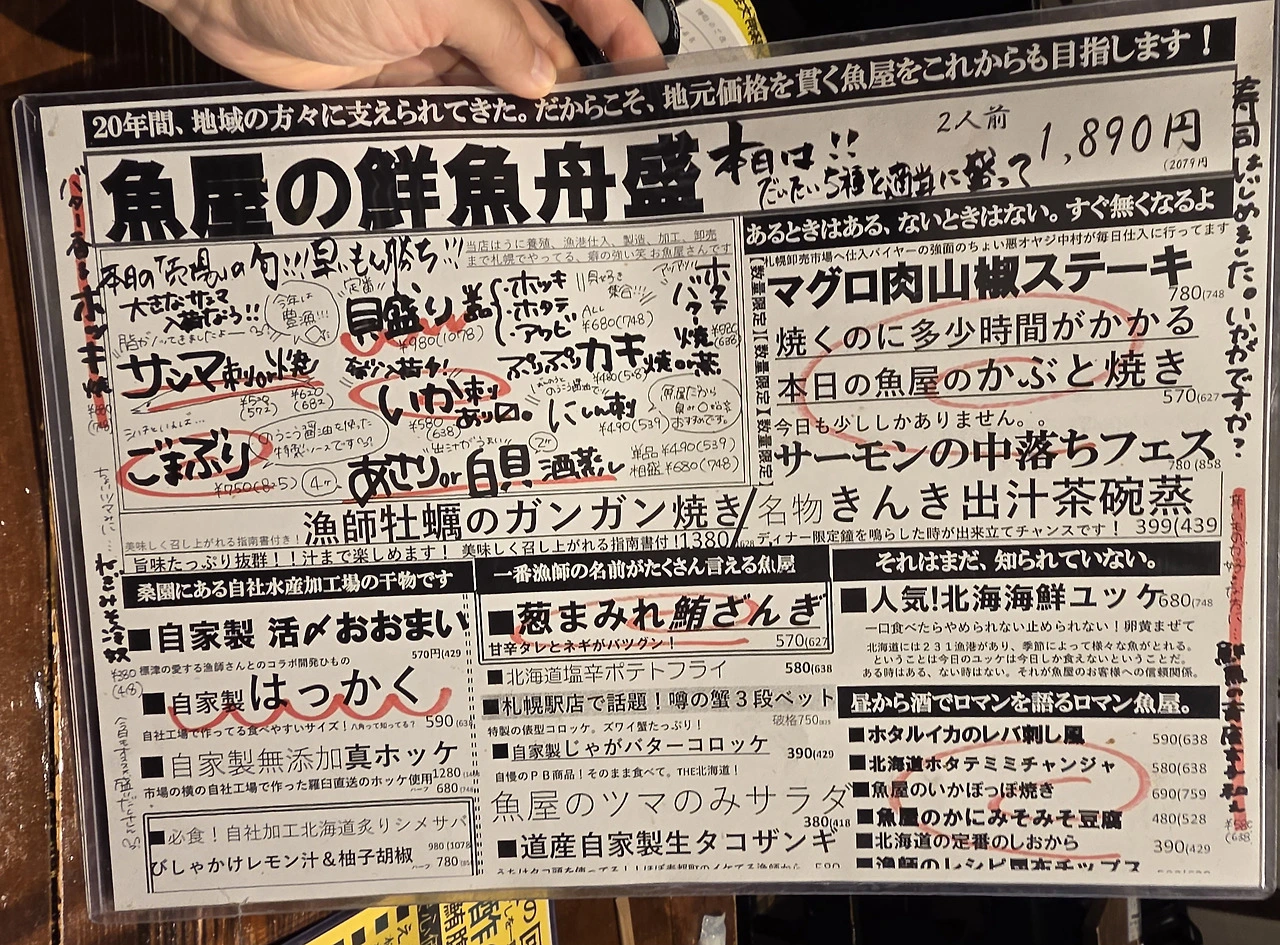 20年間、地域の方々に支えられてきた。だからこそ、地元価格を貫く魚屋をこれからも目指します！
魚屋の鮮魚舟盛
本日は!!
だいたい5種を適当に盛って
2人前
1,890円
(2079円
寿司はじめました。いかがですか？
バター香る ホッキ焼
当店はうに養殖、漁港仕入、製造、加工、卸売
まで札幌でやってる、癖の強い笑 お魚屋さんです
本日の「売場」の旬!!! 早いもん勝ち!!!
大きなサンマ
入荷なう!!
今年は
豊漁!!!
脂がノッてきましたよー
サンマ刺or焼
¥520
(572)
¥620
(682)
定番
貝盛り
¥980(1078)
・ホッキ
・ホタテ
・アワビ
貝づき
集合!!
ALL
¥680(748)
アッアツ
ホタテバター焼
¥580
(638)
いか刺
あり〼。
¥580
(638)
ぷりぷりカキ 焼or蒸
¥480(528)
にしん刺
¥490(539)
ごまぶり
¥750(825)
4ヶ
のうこう醤油を使った
特製ソースです
あさりor白貝 酒蒸し
出汁がうまい
単品¥490(539)
相盛¥680(748)
漁師牡蠣のガンガン焼き
美味しく召し上がれる指南書付き！
旨味たっぷり抜群！！汁まで楽しめます！ 美味しく召し上がれる指南書付！1380
あるときはある、ないときはない。すぐ無くなるよ
札幌卸売市場へ仕入バイヤーの強面のちょい悪オヤジ中村が毎日仕入に行ってます
【数量限定】【数量限定】数量限定
マグロ肉山椒ステーキ
780(748
焼くのに多少時間がかかる
本日の魚屋のかぶと焼き
570(627
今日も少ししかありません。。
サーモンの中落ちフェス
780(858
名物きんき出汁茶碗蒸
ディナー限定鐘を鳴らした時が出来立てチャンスです！ 399(439
桑園にある自社水産加工場の干物です
■自家製 活〆おおまい
570円(429
標津の愛する漁師さんとのコラボ開発ひもの
■自家製はっかく
自社工場で作ってる食べやすいサイズ！八角って知ってる？ 590
■自家製無添加真ホッケ
市場の横の自社工場で作った羅臼直送のホッケ使用1280
ハーフ 680
■必食！自社加工北海道炙りシメサバ
980(1078
びしゃかけレモン汁＆柚子胡椒
ハーフ 780
一番漁師の名前がたくさん言える魚屋
■葱まみれ鮪ざんぎ
甘辛タレとネギがバツグン！
570(627
■北海道塩辛ポテトフライ 580(638
■札幌駅店で話題！噂の蟹３段ベット
特製の俵型コロッケ。ズワイ蟹たっぷり！ 破格750
■自家製じゃがバターコロッケ 390(429
自慢のＰＢ商品！そのまま食べて。THE北海道！
魚屋のツマのみサラダ
380(418
■道産自家製生タコザンギ
それはまだ、知られていない。
■人気!北海海鮮ユッケ680(748
一口食べたらやめられない止められない！卵黄まぜて
北海道には２３１漁港があり、季節によって様々な魚がとれる。
ということは今日のユッケは今日しか食えないということだ。
ある時はある、ない時はない。それが魚屋のお客様への信頼関係。
昼から酒でロマンを語るロマン魚屋。
■ホタルイカのレバ刺し風 590(638
■北海道ホタテミミチャンジャ 580(638
■魚屋のいかぽっぽ焼き 690(759
■魚屋のかにみそみそ豆腐 480(528
■北海道の定番のしおから 390(429
■漁師のレシピ昆布チップス